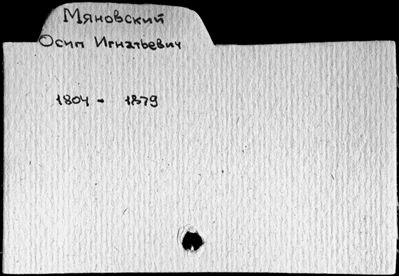 Мяновский
Осип Игнатьевич
1804 - 1879